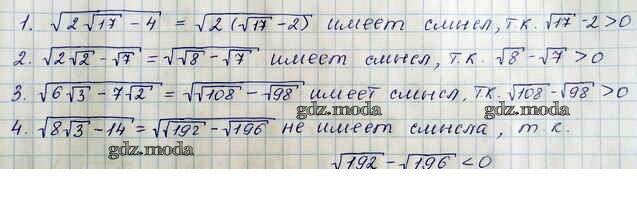 1. √(2√17 - 4) = √(2(√17 - 2)) имеет смысл, т.к. √17 - 2 > 0
2. √(2√2 - √7) = √(√8 - √7) имеет смысл, т.к. √8 - √7 > 0
3. √(6√3 - 7√2) = √(√108 - √98) имеет смысл, т.к. √108 - √98 > 0
gdz.moda gdz.moda
4. √(8√3 - 14) = √(√192 - √196) не имеет смысла, т.к.
gdz.moda
√192 - √196 < 0